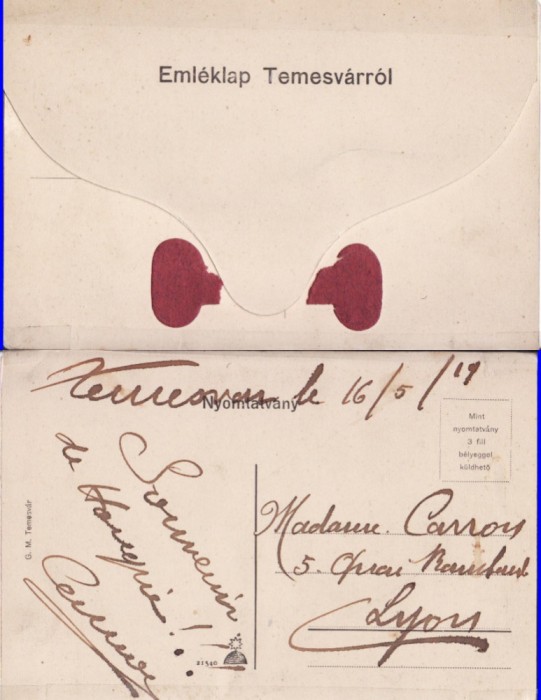 Emléklap Temesvárról
Temesvar le 16/5/19
Nyomtatvány
Mint
nyomtatvány
3 fill
bélyeggel
küldhető
Souvenir
de Hongrie!
G. M. Temesvár
Madame Carron
5. Quai Rambaud
Lyon
21340